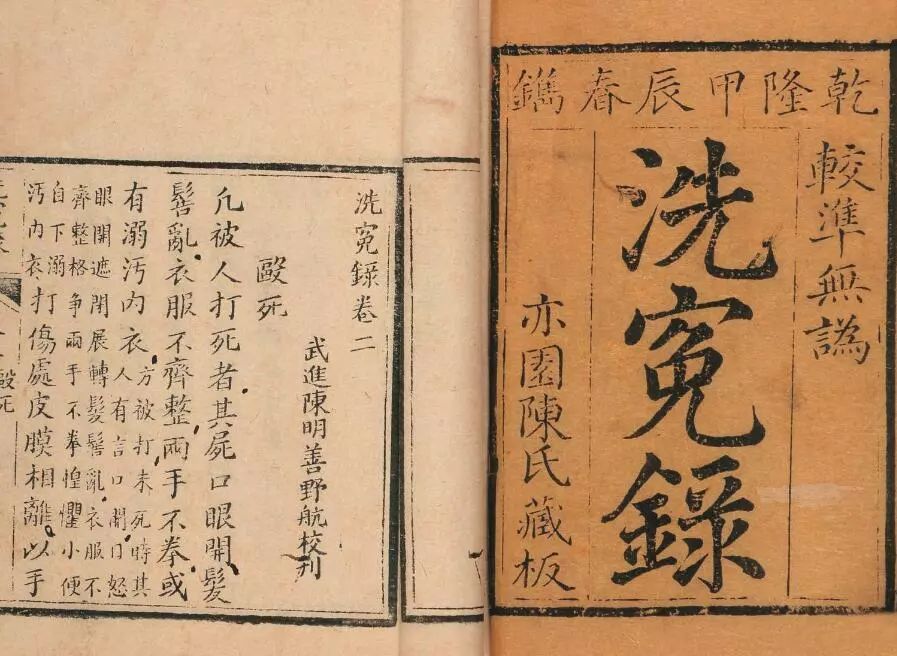 乾隆甲辰春鐫
較準無譌
洗寃錄
亦園陳氏藏板
洗寃錄卷二
武進陳明善野航校刊
毆死
凡被人打死者其屍口眼開髮
髻亂衣服不齊整兩手不拳或
有溺汚内衣方被打未死時其
人有言口開目怒
眼開遮閉展轉髮髻亂衣服不
齊整格爭兩手不拳惶懼小便
自下溺
汚内衣打傷處皮膜相離以手